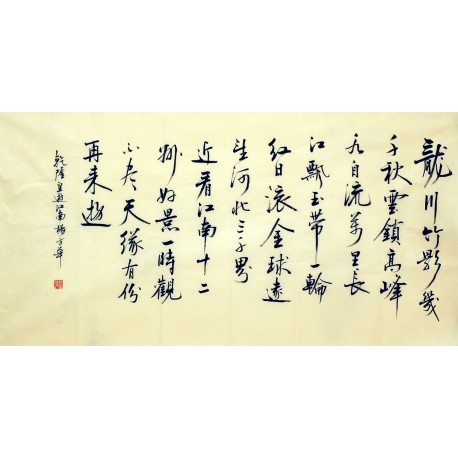 龍川竹影幾
千秋雲鎖高峰
水自流萬里長
江飄玉帶一輪
紅日滾金球遠
望河北三千界
近看江南十二
州好景一時觀
不盡天緣有份
再来遊
乾隆皇遊江南